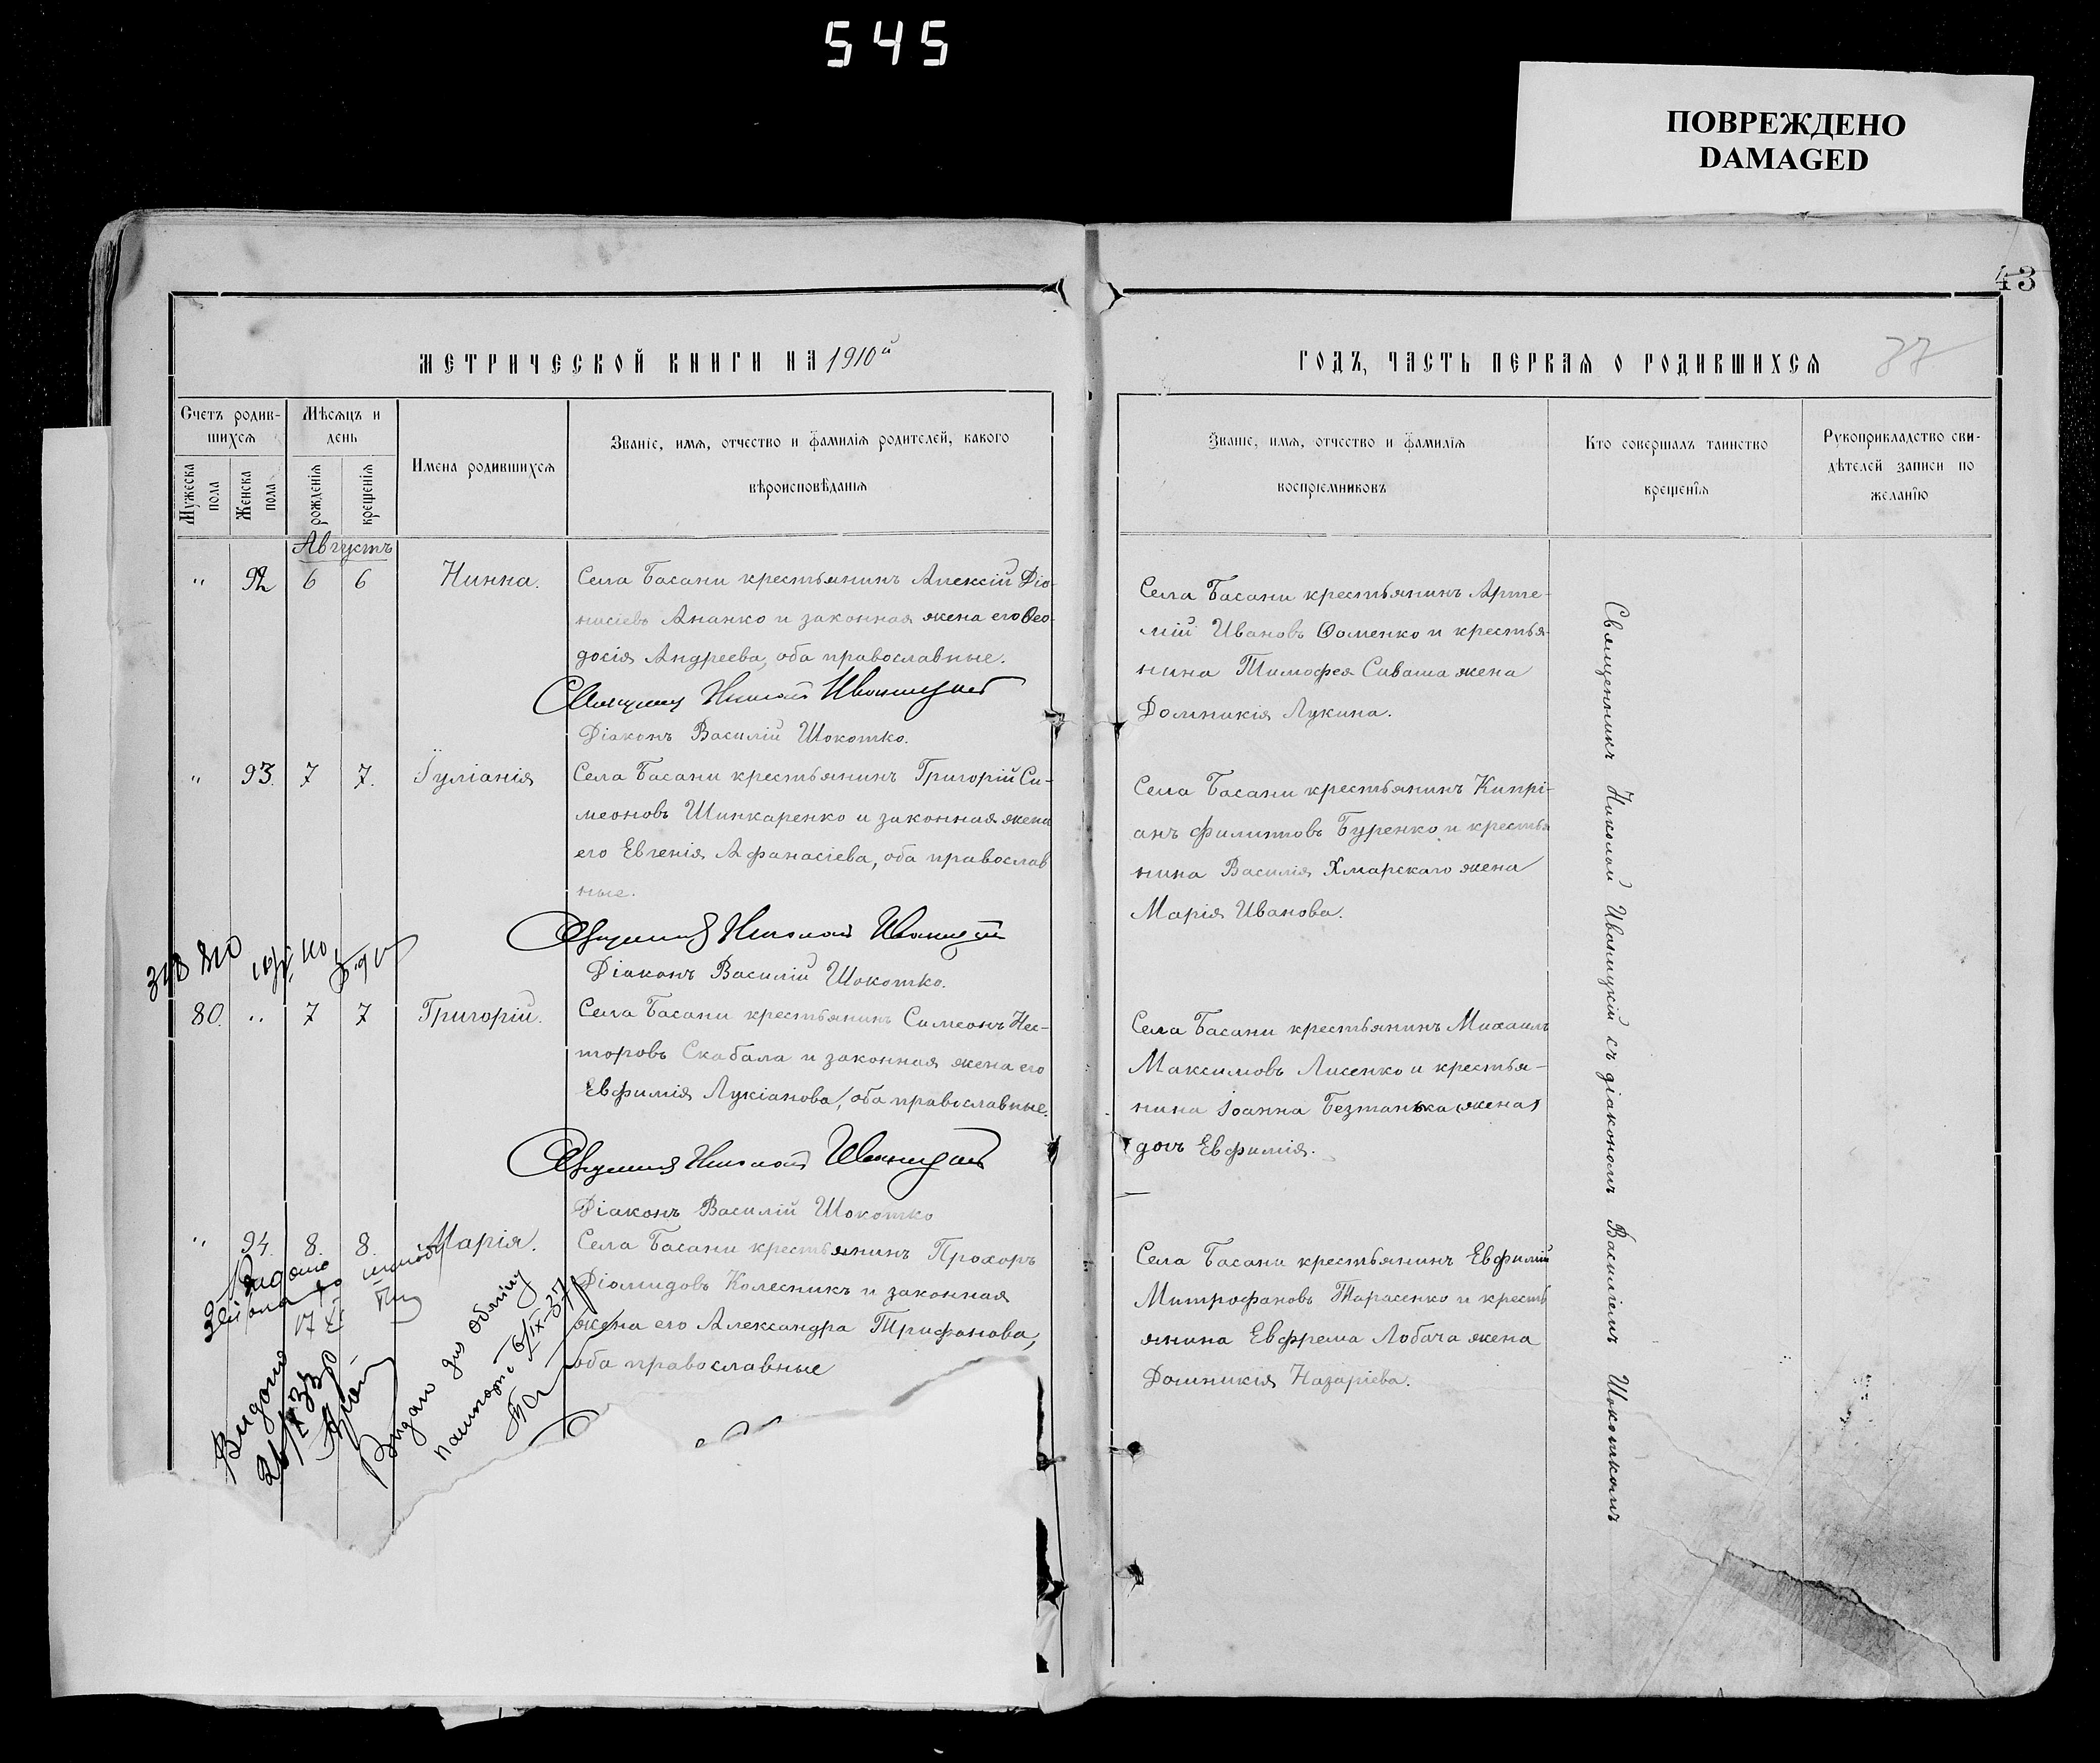 545
ПОВРЕЖДЕНО
DAMAGED
43
37
МЕТРИЧЕСКОЙ КНИГИ НА 1910й
Счетъ родив-
шихся
Мѣсяцъ и
день
Имена родившихся
Званіе, имя, отчество и фамилія родителей, какого
вѣроисповѣданія
Мужеска
пола
Женска
пола
рожденія
крещенія
Августъ
" 92 6 6 Нинна.
Села Басани крестьянинъ Алексій Діо-
нисіевъ Ананко и законная жена его Ѳео-
досія Андреева, оба православные.
Священникъ Николай Иваницкій
Діаконъ Василій Шокотко.
" 93. 7 7. Іуліанія
Села Басани крестьянинъ Григорій Си-
меоновъ Шинкаренко и законная жена
его Евгенія Афанасіева, оба православ
ные.
Священникъ Николай Иваницкій
Діаконъ Василій Шокотко.
80. " 7 7 Григорій.
Села Басани крестьянинъ Симеонъ Нес-
торовъ Скабала и законная жена его
Евфимія Лукіанова, оба православные.
Священникъ Николай Иваницкій
Діаконъ Василій Шокотко
" 94. 8. 8. Марія.
Села Басани крестьянинъ Прохоръ
Діомидовъ Колесникъ и законная
жена его Александра Трифанова,
оба православные
Видано
17 XI
Видано
Видано для обміну
паспорта 6/IX-37
ГОДЪ, ЧАСТЬ ПЕРВАЯ О РОДИВШИХСЯ
Званіе, имя, отчество и фамилія
воспріемниковъ
Кто совершалъ таинство
крещенія
Рукоприкладство сви-
дѣтелей записи по
желанію
Села Басани крестьянинъ Арте-
мій Ивановъ Ѳоменко и крестья-
нина Тимофея Сиваша жена
Домникія Лукина.
Села Басани крестьянинъ Кипрі-
анъ Филиповъ Буренко и крестья
нина Василія Хмарскаго жена
Марія Иванова.
Села Басани крестьянинъ Михаилъ
Максимовъ Лисенко и крестья-
нина Іоанна Безтанька жена
дочь Евфимія.
Села Басани крестьянинъ Евфимій
Митрофановъ Тарасенко и кресть
янина Евфрема Лобача жена
Домникія Назаріева.
Священникъ Николай Иваницкій съ діакономъ Василіемъ Шокоткомъ